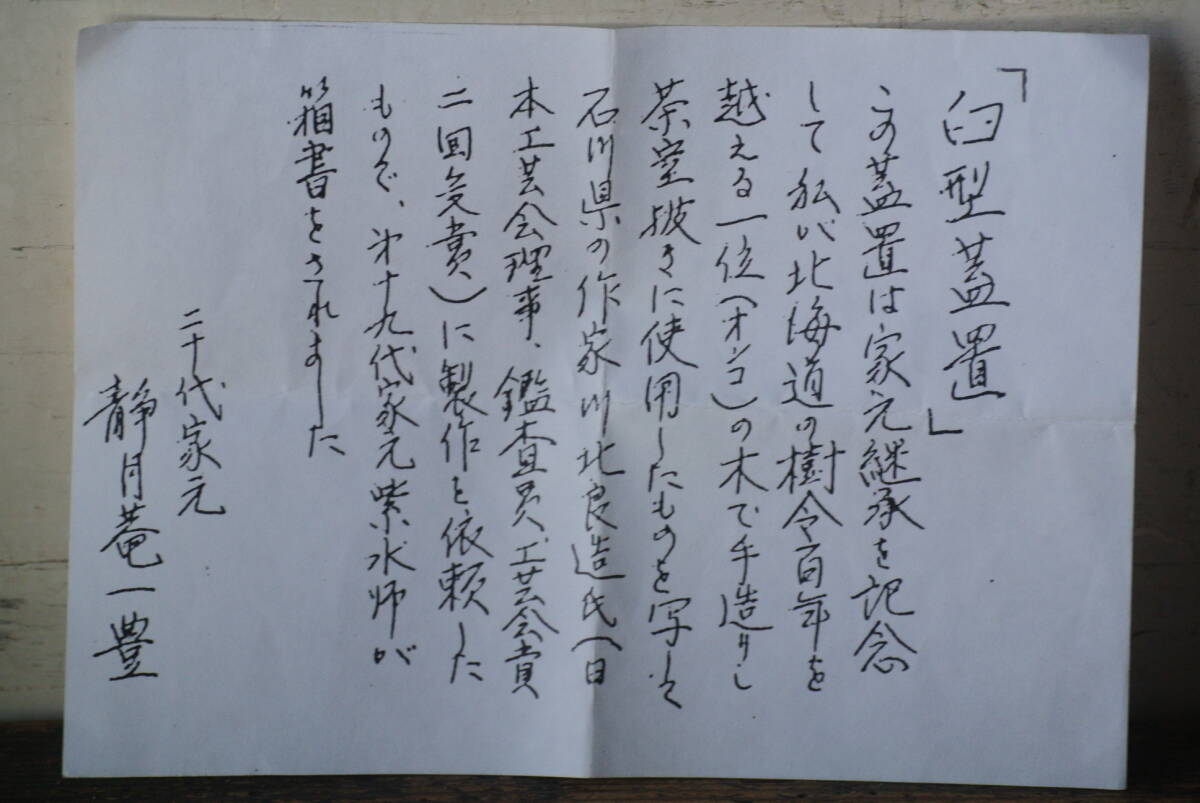 「臼型蓋置」
この蓋置は家元継承を記念
して私が北海道の樹令百年を
越える一位(オンコ)の木で手造りし
茶室披きに使用したものを写して
石川県の作家川北良造氏(日
本工芸会理事、鑑査員、工芸会賞
二回受賞)に製作を依頼した
もので、第十九代家元紫水師が
箱書をされました
二十代家元
靜月菴一豊